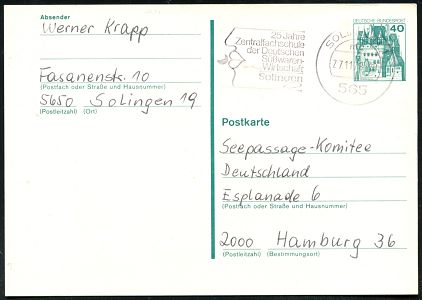 Absender
Werner Krapp
Fasanenstr. 10
(Postfach oder Straße und Hausnummer)
5650 Solingen 19
(Postleitzahl) (Ort)
25 Jahre
Zentralfachschule
der Deutschen
Süßwaren-
Wirtschaft
Solingen
565
DEUTSCHE BUNDESPOST
40
Postkarte
Seepassage-Komitee
Deutschland
Esplanade 6
(Postfach oder Straße und Hausnummer)
2000 Hamburg 36
(Postleitzahl) (Bestimmungsort)